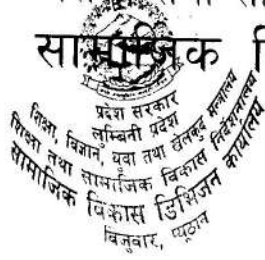 सामाजिक
प्रदेश सरकार
लुम्बिनी प्रदेश
शिक्षा, विज्ञान, युवा तथा खेलकुद मन्त्रालय
शिक्षा तथा सामाजिक विकास निर्देशनालय
सामाजिक विकास डिभिजन कार्यालय
बिजुवार, प्यूठान